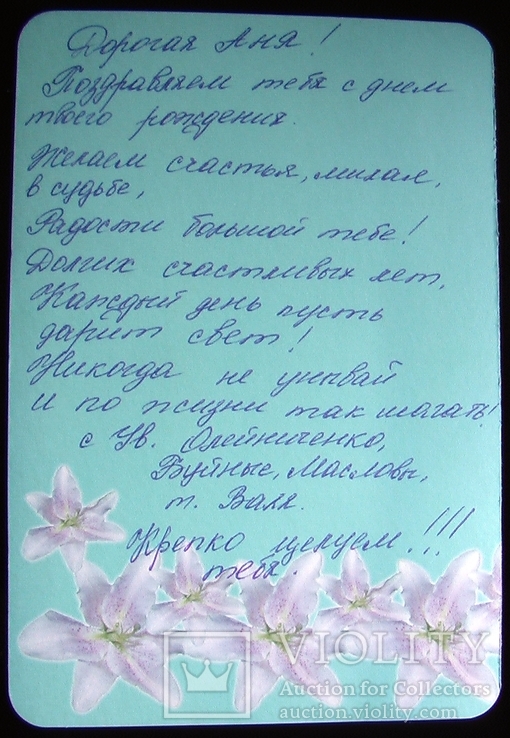 Дорогая Аня!
Поздравляем тебя с днем
твоего рождения.
Желаем счастья, милая,
в судьбе,
Радости большой тебе!
Долгих счастливых лет,
Каждый день пусть
дарит свет!
Никогда не унывай
и по жизни так шагать!
с Ув. Олейниченко,
Буйные, Масловы,
т. Валя.
Крепко целуем!!!
тебя.
VIOLITY
Auction for Collectors
auction.violity.com